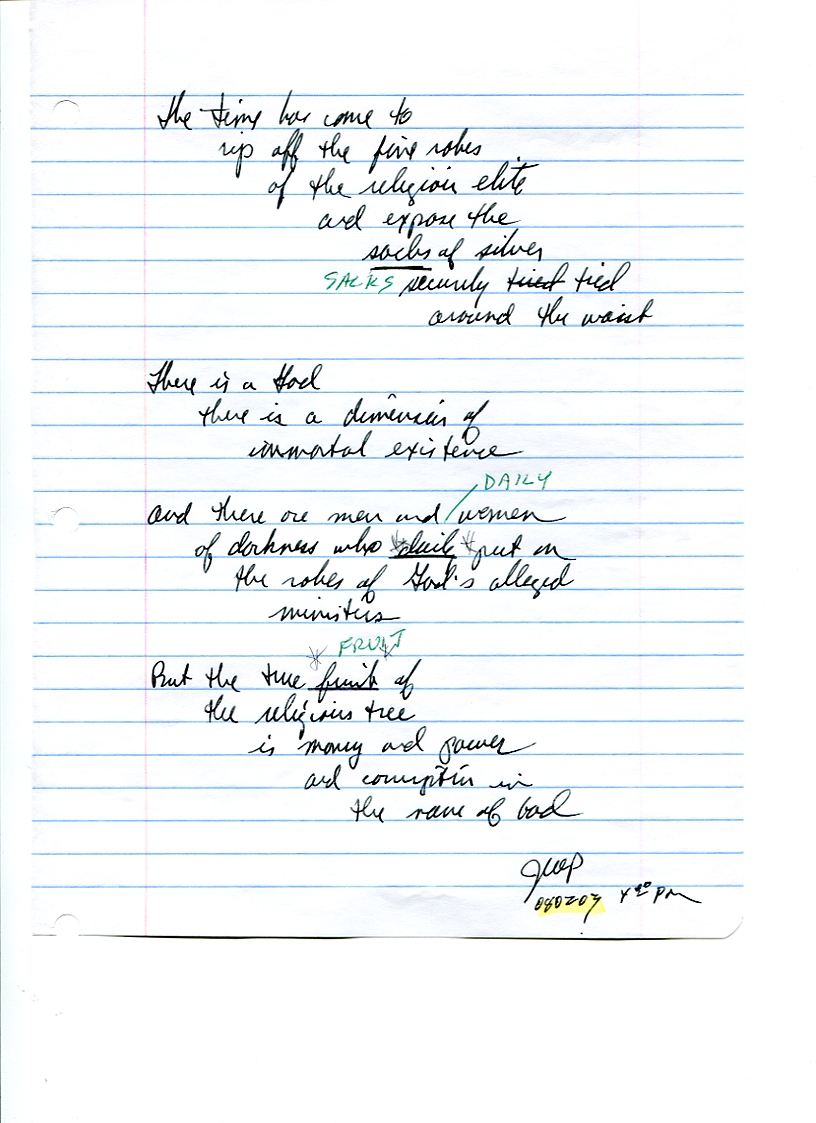 The time has come to
rip off the fine robes
of the religious elite
and expose the
sacks of silver
SACKS securely tried tied
around the waist
There is a God
there is a dimension of
immortal existence
DAILY
and there are men and / women
of darkness who daily put on
the robes of God's alleged
ministers
FRUIT
But the true fruit of
the religious tree
is money and power
and corruption in
the name of God
080207 4 PM